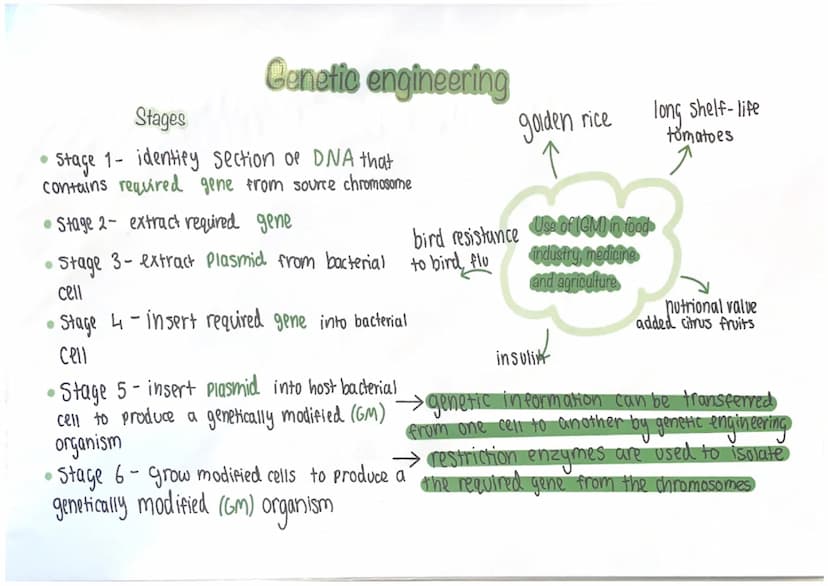 Genetic engineering
Stages
• Stage 1- identify section of DNA that
contains required gene from source chromosome
• Stage 2- extract required gene
• Stage 3- extract plasmid from bacterial
cell
• Stage 4- insert required gene into bacterial
cell
• Stage 5- insert plasmid into host bacterial
cell to produce a genetically modified (GM)
organism
• Stage 6- grow modified cells to produce a
genetically modified (GM) organism
golden rice
long shelf-life
tomatoes
Use of (GM) in food
industry, medicine
and agriculture
bird resistance
to bird flu
nutrional value
added citrus fruits
insulin
→ genetic information can be transferred
from one cell to another by genetic engineering
→ restriction enzymes are used to isolate
the required gene from the chromosomes